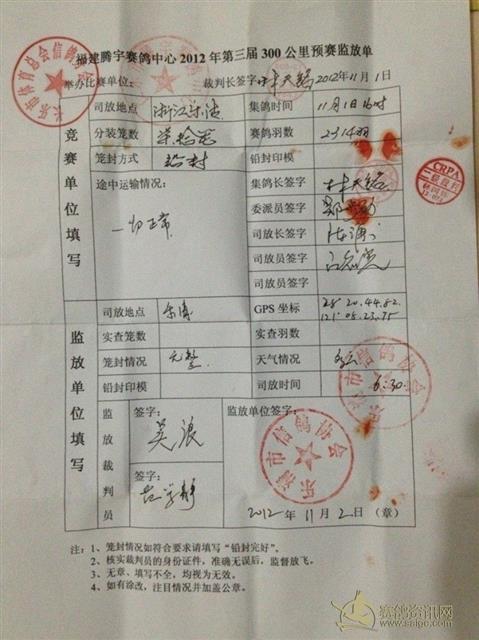 福建腾宇赛鸽中心 2012 年第三届 300 公里预赛监放单
举办比赛单位： 裁判长签字: 林天铭 2012年11月1日
竞赛单位填写
司放地点 浙江乐清 集鸽时间 11月1日16时
分装笼数 赛鸽羽数 2314羽
笼封方式 铅封 铅封印模
途中运输情况： 集鸽长签字 林天铭
一切正常 委派员签字
司放长签字
司放员签字
司放员签字
监放单位填写
司放地点 乐清 GPS 坐标 28.20.44.82 121.08.23.75
实查笼数 实查羽数
笼封情况 完整 天气情况 多云
铅封印模 司放时间 6:30
监放裁判员
签字： 吴浪 监放单位签字：
签字：
2012年11月2日（章）
注：1、笼封情况如符合要求请填写“铅封完好”。
2、核实裁判员的身份证件，准确无误后，监督放飞。
3、无章、填写不全，均视为无效。
4、如有涂改，注目情况并加盖公章。
长乐市体育总会信鸽协会
CRPA
二级裁判
乐清市信鸽协会
乐清市信鸽协会
赛鸽资讯网
www.saige.com